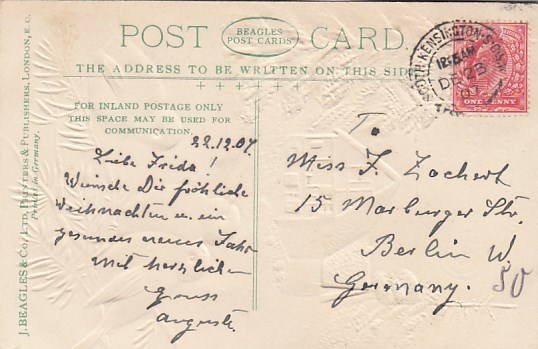 POST CARD.
BEAGLES
POST CARDS
THE ADDRESS TO BE WRITTEN ON THIS SIDE
FOR INLAND POSTAGE ONLY
THIS SPACE MAY BE USED FOR
COMMUNICATION.
J. BEAGLES & CO., LTD., PRINTERS & PUBLISHERS, LONDON, E.C.
Printed in Germany.
22.12.07.
Liebe Frida!
Wünsche Dir fröhliche
Weihnachten u. ein
gesundes neues Jahr
Mit herzlichen
Gruss
Auguste.
SOUTH KENSINGTON
DE 23
07
ONE PENNY
To
Miss F. Zachert
15 Marburger Str.
Berlin W.
Germany.
50